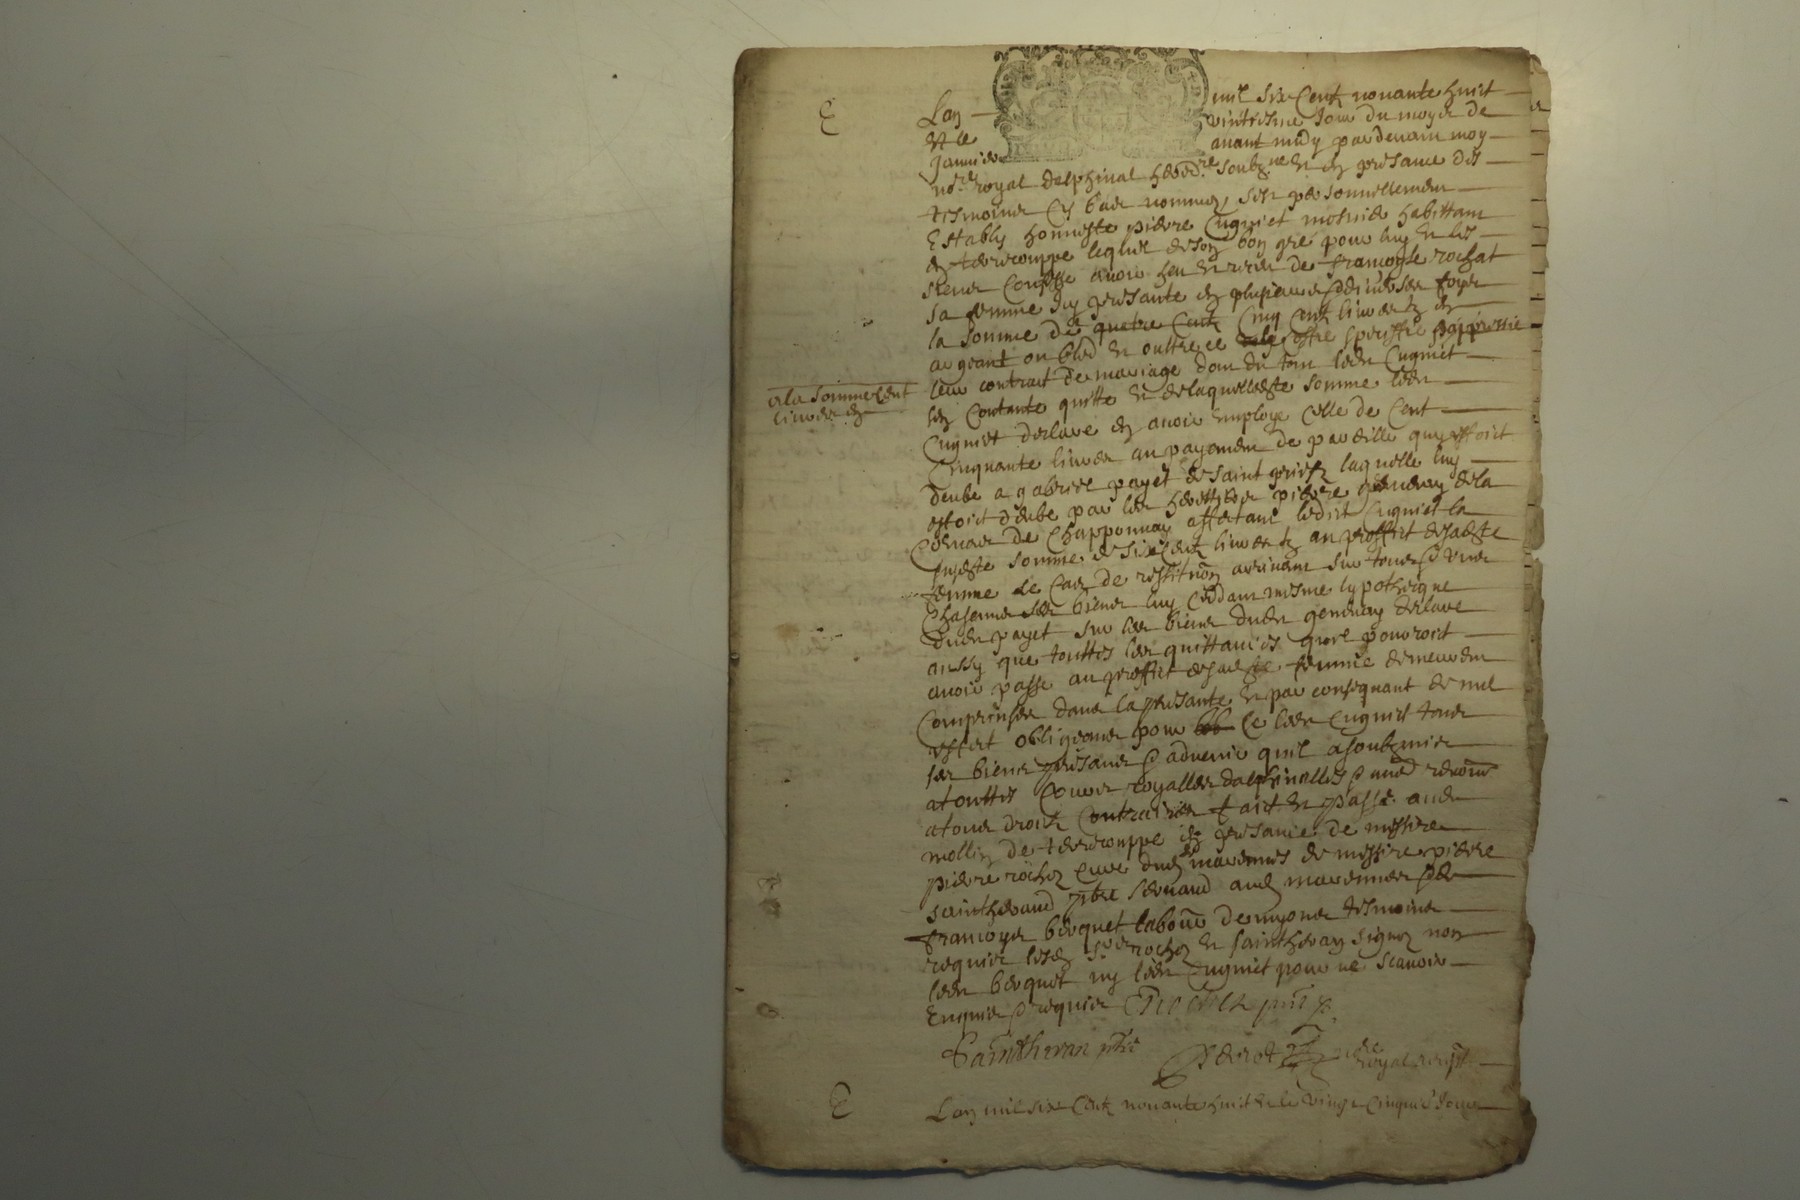 E
Lan — mil six Centz nouante huict
Et le vintiesme Jour du moys de
Janvier auant midy par deuant moy
no.re royal delphinal hered.re soubz.ne et en presance des
tesmoins cy bas nommez, sest personnellement
Estably honneste pierre Cugniet mosnier habittant
en ternouppe lequel de son bon gre pour luy et les
siens Confesse auoir heu et receu de francoyse rochat
sa femme icy presante en plusieurs diuerses foys
la somme de quatre Centz Cinq Centz liures tz en
argeant ou bled et oultre ce
leur contract de mariage dont du tout ledt Cugniet
sen Contante quitte et de laquelle dte somme ledt
a la somme Cent
liures tz
Cugniet declare en auoir employe Celle de Cent
Cinquante liures au payement de pareille quy estoit
deube a gabriel payet de saint priest laquelle luy
estoit deube par les heretiers pierre gendray de la
Commune de Chapponnay affectant ledict Cugniet la
susdte somme de six Centz liures tz au proffict de sa dte
femme le Cas de restitution aduenant sur tous et uns
Chascuns ses biens luy Ceddant mesme hypotheque
dudt payet sur les biens dudt gendray declare
aussy que touttes les quittances quil pourroit
auoir passe au proffict de sa dte femme demeurent
Comprinses dans la presante et par consequant de nul
effect obligeant pour Ce ledt Cugniet tous
ses biens presans et aduenir quil a soubzmis
a touttes Cours royalles dalphinalles et aues renons
a tous droitz Contraires fait et passe audt
mollin de ternouppe en presance de messire
pierre rochez Cure dudt marennes de messire pierre
sainthevand ptre seruand audt marennes et de
francoys becquet labour de myons tesmoins
requis lesdt srs rochez et sainthevan signez non
ledt becquet ny ledt Cugniet pour ne scauoir
Enquis et requis Rochez pnt
Sainthevan ptre
no.re royal
E
Lan mil six Centz nouante huict et le vingt Cinquie Jour